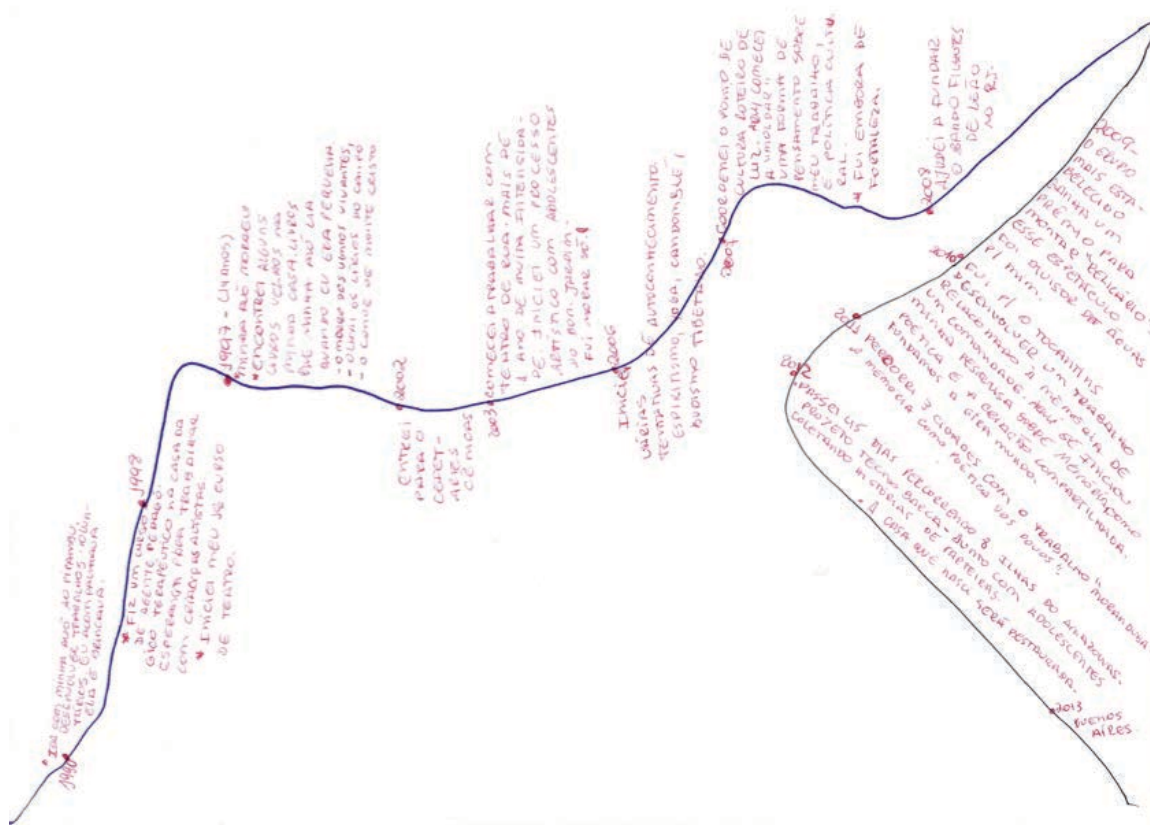 1990
* IDA COM MINHA AVÓ AO PIRAMBU
DESENVOLVER TRABALHOS VOLUN-
TÁRIOS. EU ACOMPANHAVA
ELA E BRINCAVA.
1998
* FIZ UM CURSO
DE AGENTE PEDAGÓ-
GICO TERAPÊUTICO NA CASA DA
ESPERANÇA PARA TRABALHAR
COM CRIANÇAS AUTISTAS.
* INICIEI MEU 1º CURSO
DE TEATRO.
1997 - (11 ANOS)
* MINHA AVÓ MORREU
* ENCONTREI ALGUNS
LIVROS VELHOS NA
MINHA CASA. LIVROS
QUE MINHA MÃE LIA
QUANDO EU ERA PEQUENA.
- O MORRO DOS VENTOS UIVANTES,
- OLHAI OS LÍRIOS DO CAMPO
- O CONDE DE MONTE CRISTO
2002
ENTREI
PARA O
CEFET -
ARTES
CÊNICAS
2003
COMECEI A TRABALHAR COM
TEATRO DE RUA. MAIS DE
1 ANO DE MUITA INTENSIDA-
DE. INICIEI UM PROCESSO
ARTÍSTICO COM ADOLESCENTES
NO BOM JARDIM.
FUI MORAR SÓ.
2006
INICIEI
VÁRIAS
TENTATIVAS DE AUTOCONHECIMENTO.
ESPIRITISMO, UMBANDA, CANDOMBLÉ,
BUDISMO TIBETANO.
COORDENEI O PONTO DE
CULTURA ROTEIRO DE
LUZ. ALI COMECEI
A "MOLDAR"
UMA FORMA DE
PENSAMENTO SOBRE
MEU TRABALHO,
E POLÍTICA CULTU-
RAL.
* FUI EMBORA DE
FORTALEZA.
2008
AJUDEI A FUNDAR
O BANDO FILHOTES
DE LEÃO
NO RJ.
2009-
O GRUPO
MAIS ESTA-
BELECIDO
GANHA UM
PRÊMIO PARA
MONTAR RELICÁRIO.
ESSE ESPETÁCULO
FOI DIVISOR DE ÁGUAS
P/ MIM.
2010
FUI P/ O TOCANTINS
DESENVOLVER UM TRABALHO
RELACIONADO À MEMÓRIA DE
UMA COMUNIDADE. ALI SE INICIOU
MINHA PESQUISA SOBRE MEMÓRIA COMO
POÉTICA E A CRIAÇÃO COMPARTILHADA.
FUNDAMOS A GIRA MUNDO.
2011
PERCORRER 7 CIDADES COM O TRABALHO "MORANDUBA
A MEMÓRIA COMO POÉTICA DOS POVOS".
2012
PASSEI 45 DIAS PERCORRENDO 8 ILHAS DO AMAZONAS.
PROJETO TECNO BARCA - JUNTO COM ADOLESCENTES
COLETANDO HISTÓRIAS DE PARTEIRAS.
* A CASA QUE NASCI SERÁ RESTAURADA.
2013
BUENOS
AIRES.